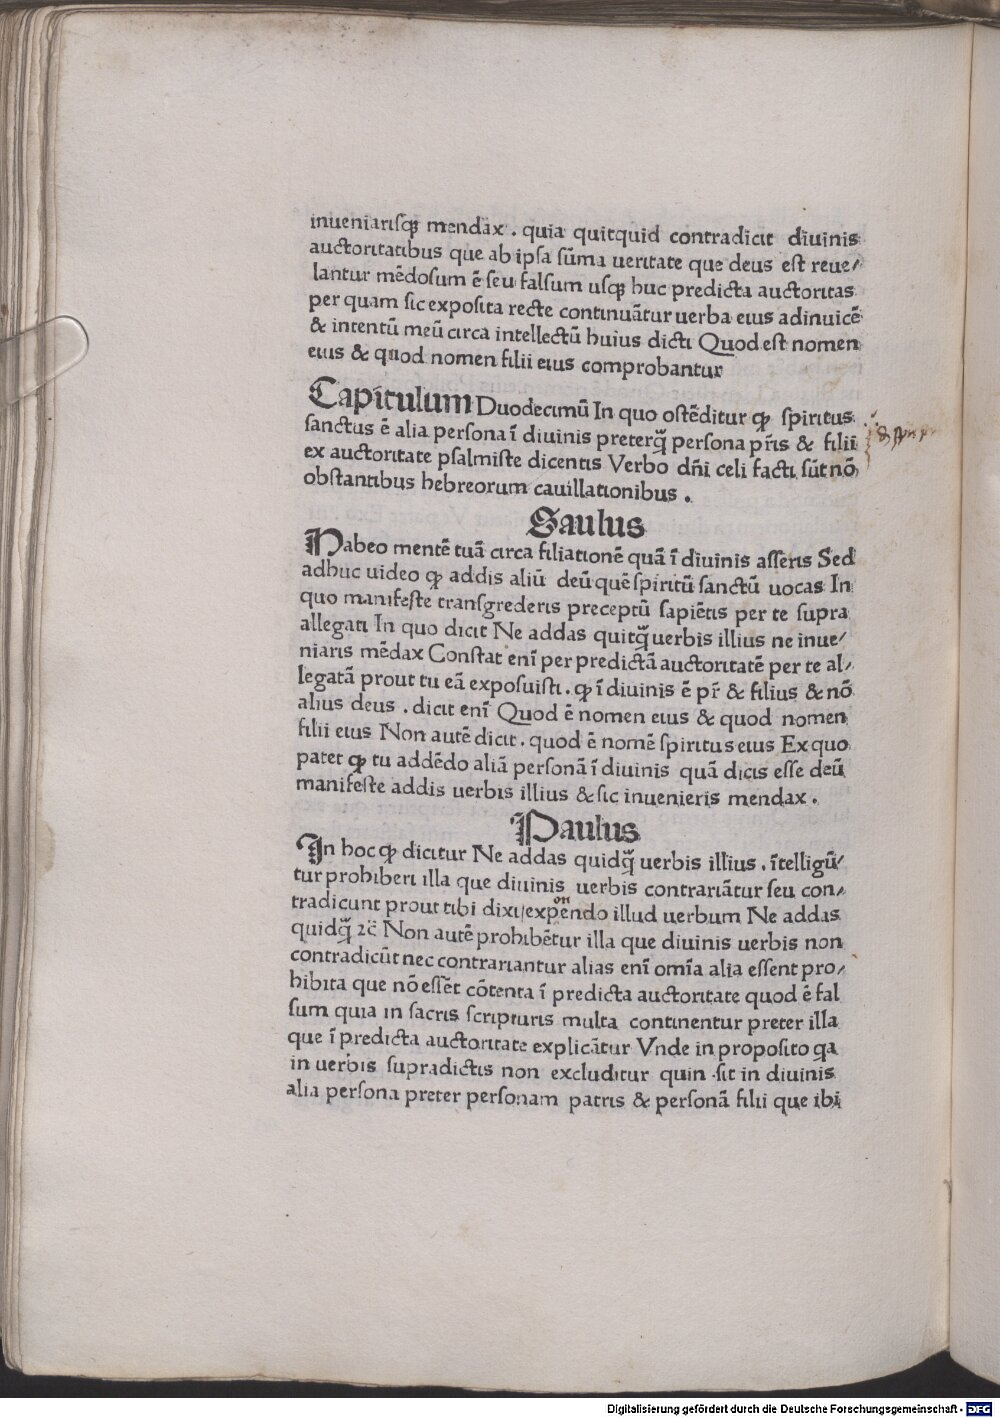 inueniarisqꝫ mendax . quia quitquid contradicit diuinis
auctoritatibus que ab ipsa sūma ueritate que deus est reue/
lantur mēdosum ē seu falsum usqꝫ huc predicta auctoritas
per quam sic exposita recte continuātur uerba eius adinuicē
& intentū meū circa intellectū huius dicti Quod est nomen
eius & quod nomen filii eius comprobantur
Capitulum Duodecimū In quo ostēditur ꝙ spiritus
sanctus ē alia persona ī diuinis preterqͣꝫ persona pr̄is & filii
ex auctoritate psalmiste dicentis Verbo dn̄i celi facti sūt nō
obstantibus hebreorum cauillationibus .
Saulus
Habeo mentē tuā circa filiationē quā ī diuinis asseris Sed
adhuc uideo ꝙ addis aliū deū quē spiritū sanctū uocas In
quo manifeste transgrederis preceptū sapiētis per te supra
allegati In quo dicit Ne addas quitqͣꝫ uerbis illius ne inue/
niaris mēdax Constat enī per predictā auctoritatē per te al/
legatā prout tu eā exposuisti . ꝙ ī diuinis ē pr̄ & filius & nō
alius deus . dicit enī Quod ē nomen eius & quod nomen
filii eius Non autē dicit . quod ē nomē spiritus eius Ex quo
patet ꝙ tu addēdo aliā personā ī diuinis quā dicis esse deū
manifeste addis uerbis illius & sic inuenieris mendax .
Paulus
In hoc ꝙ dicitur Ne addas quidqͣꝫ uerbis illius . ītelligū/
tur prohiberi illa que diuinis uerbis contrariātur seu con/
on
tradicunt prout tibi dixi expendo illud uerbum Ne addas
quidqͣꝫ ⁊c̄ Non autē prohibētur illa que diuinis uerbis non
contradicūt nec contrariantur alias enī omīa alia essent pro/
hibita que nō essēt cōtenta ī predicta auctoritate quod ē fal
sum quia in sacris scripturis multa continentur preter illa
que ī predicta auctoritate explicātur Vnde in proposito qa
in uerbis supradictis non excluditur quin sit in diuinis
alia persona preter personam patris & personā filii que ibi
Digitalisierung gefördert durch die Deutsche Forschungsgemeinschaft - DFG